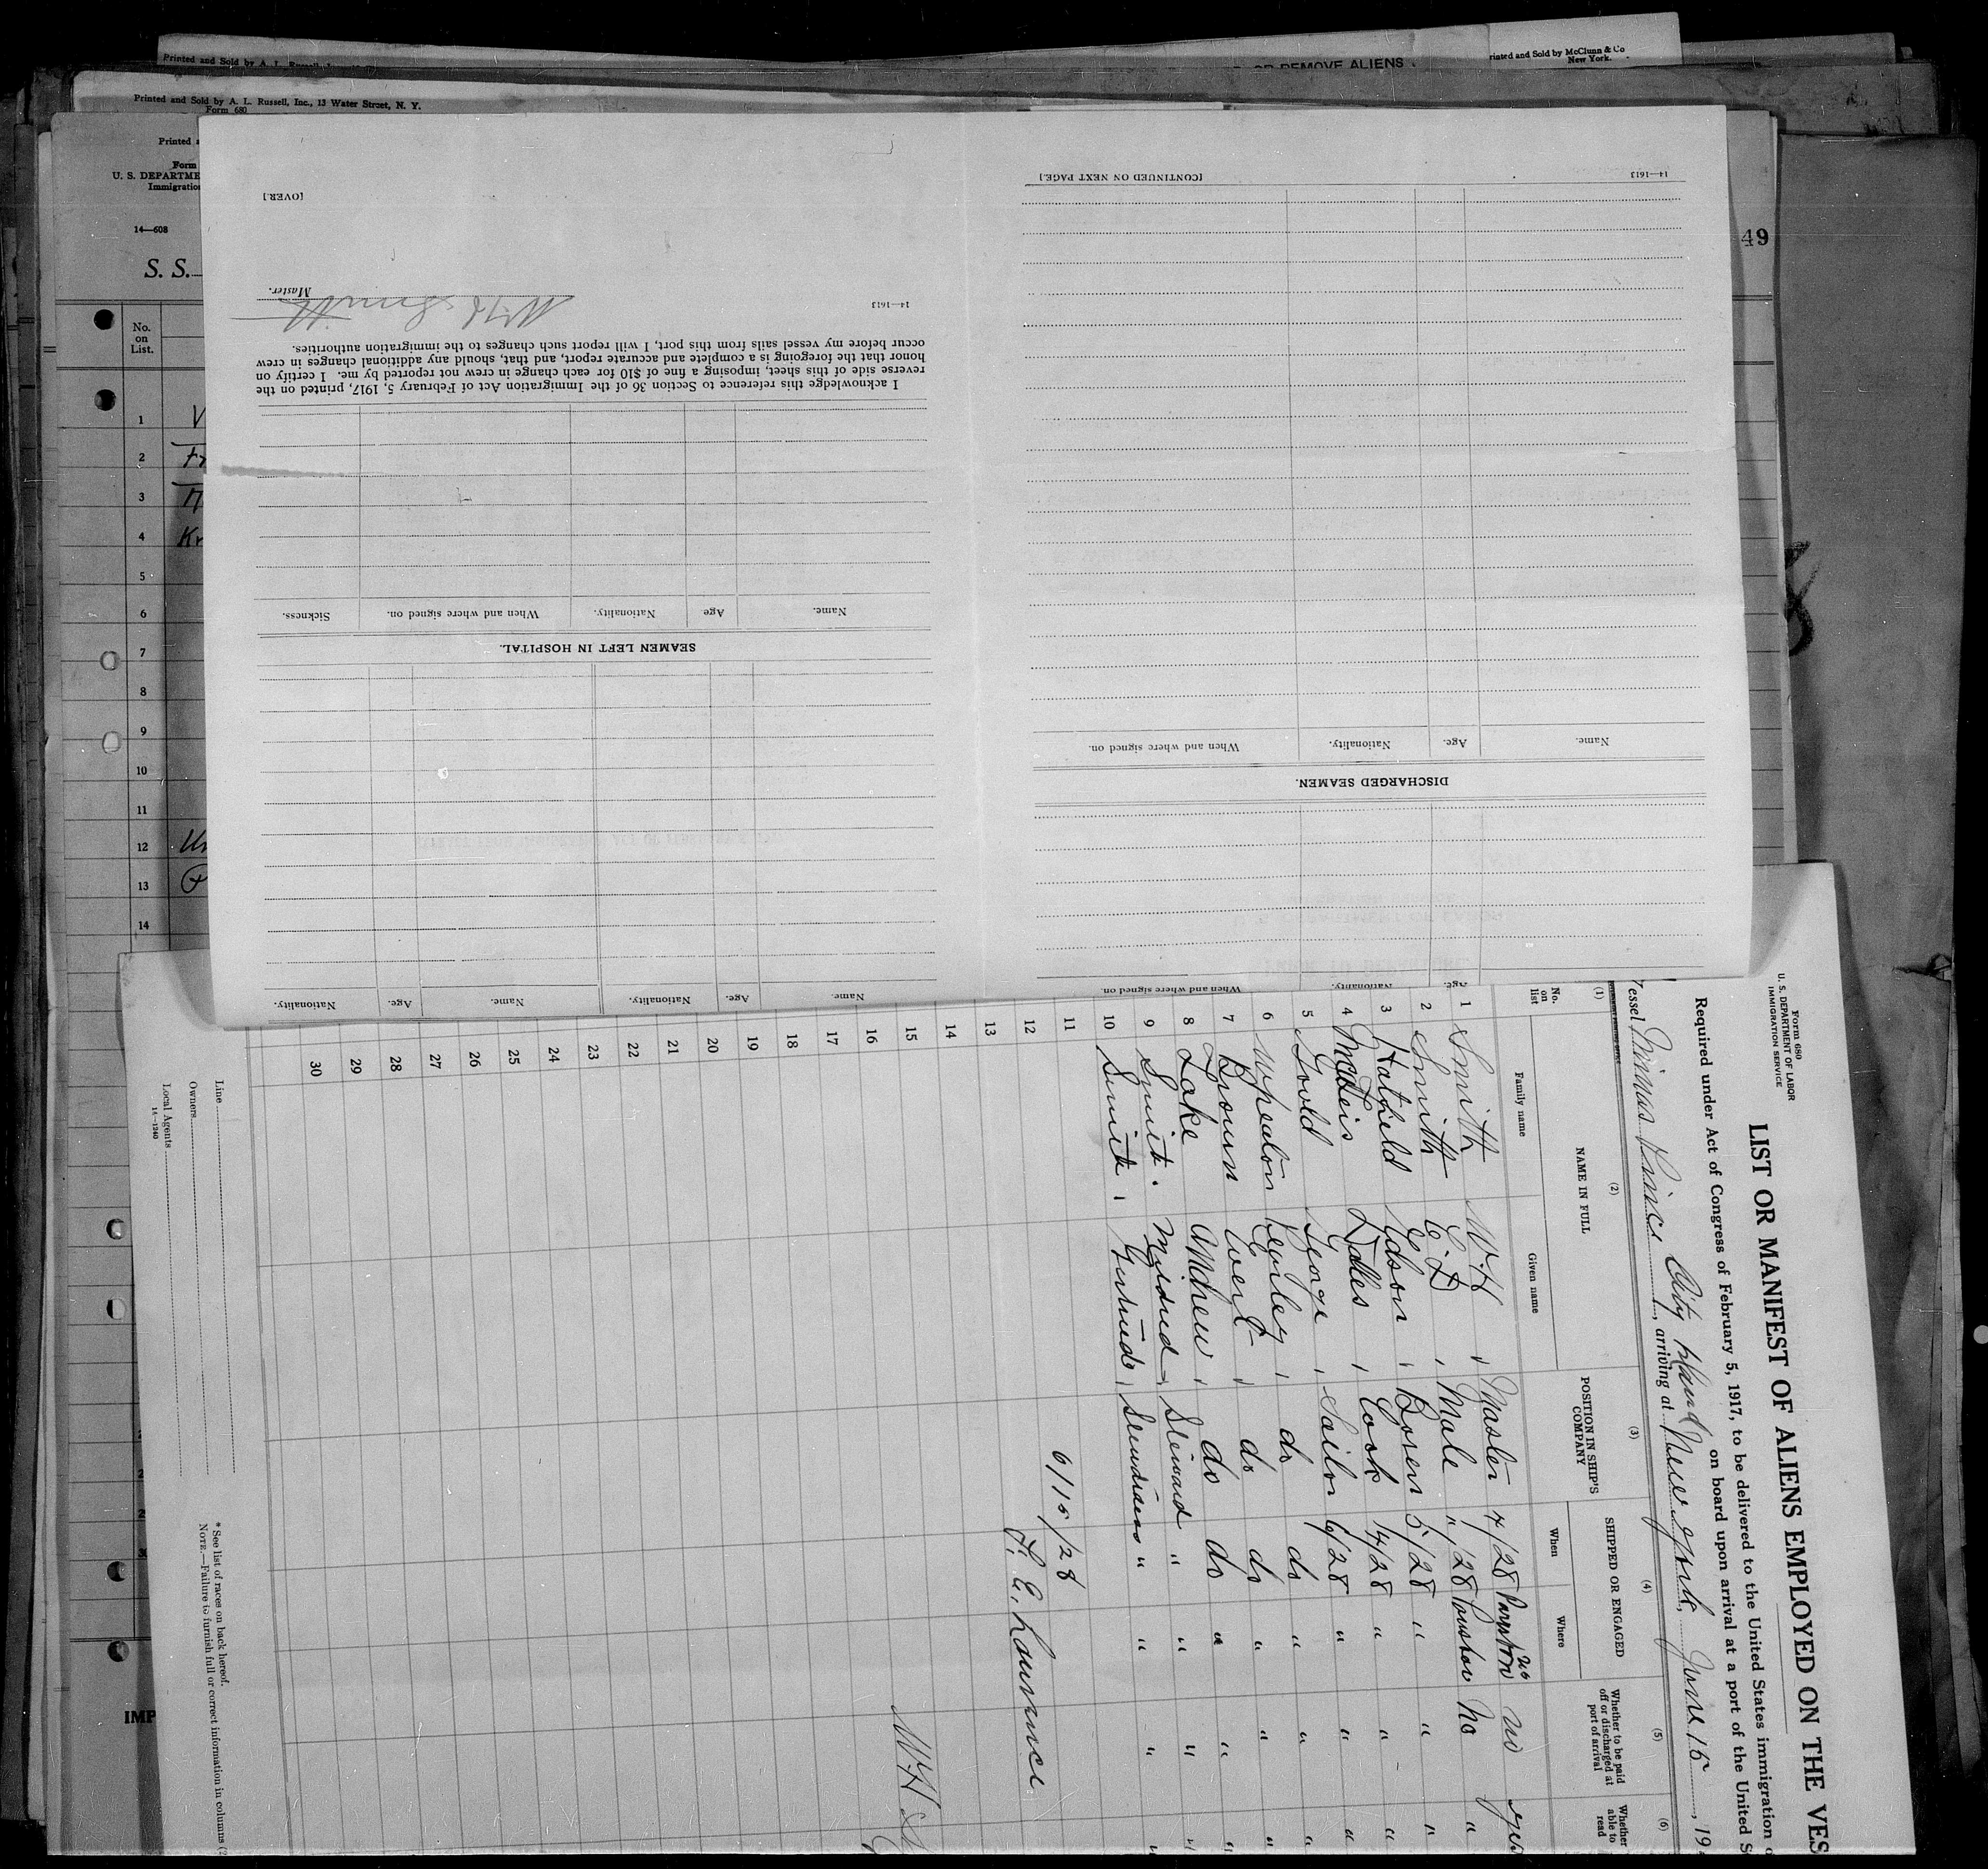 Printed and Sold by A. L. Russell, Inc.
OR REMOVE ALIENS
rinted and Sold by McClunn & Co
New York.
Printed and Sold by A. L. Russell, Inc., 13 Water Street, N. Y.
Form 680
Printed
Form
U. S. DEPARTME
Immigratio
14—608
S. S.
No.
on
List.
1
2
3
4
5
6
7
8
9
10
11
12
13
14
Kr
IMP
49
[OVER.]
14—1613
Master.
W H Smith
I acknowledge this reference to Section 36 of the Immigration Act of February 5, 1917, printed on the
reverse side of this sheet, imposing a fine of $10 for each change in crew not reported by me. I certify on
honor that the foregoing is a complete and accurate report, and that, should any additional changes in crew
occur before my vessel sails from this port, I will report such changes to the immigration authorities.
Name. Age Nationality. When and where signed on. Sickness.
SEAMEN LEFT IN HOSPITAL.
Name. Age. Nationality. Name. Age. Nationality.
14—1613 [CONTINUED ON NEXT PAGE.]
Name. Age. Nationality. When and where signed on.
DISCHARGED SEAMEN.
Age. Nationality. When and where signed on.
Form 680
U. S. DEPARTMENT OF LABOR
IMMIGRATION SERVICE
LIST OR MANIFEST OF ALIENS EMPLOYED ON THE VES
Required under Act of Congress of February 5, 1917, to be delivered to the United States immigration
on board upon arrival at a port of the United S
Vessel Minas Prince, arriving at City Island New York, June 15, 19
(1) (2) (3) (4) (5) (6)
No. on list
NAME IN FULL
Family name Given name
POSITION IN SHIP'S COMPANY
SHIPPED OR ENGAGED
When Where
Whether to be paid off or discharged at port of arrival
Whether able to read
1 Smith W. H Master 4/28 no yes
2 Smith E. D Mate " /28 No "
3 Hatfield Edson Bosen 5/28 " " "
4 Cook 14/28 " " "
5 Gould George Sailor 6/28 " " "
6 Whealon do do " " "
7 Brown do do " " "
8 Lake Andrew do do " " "
9 Smith Mildred Steward " " " "
10 Smith Gertrude Stewardess " " " "
11
12
13
14
15
16
17
18
19
20
21
22
23
24
25
26
27
28
29
30
6/15/28
F. E. Lawrence
W H S
Line
Owners
Local Agents
14—1240
* See list of races on back hereof.
NOTE.—Failure to furnish full or correct information in columns (2